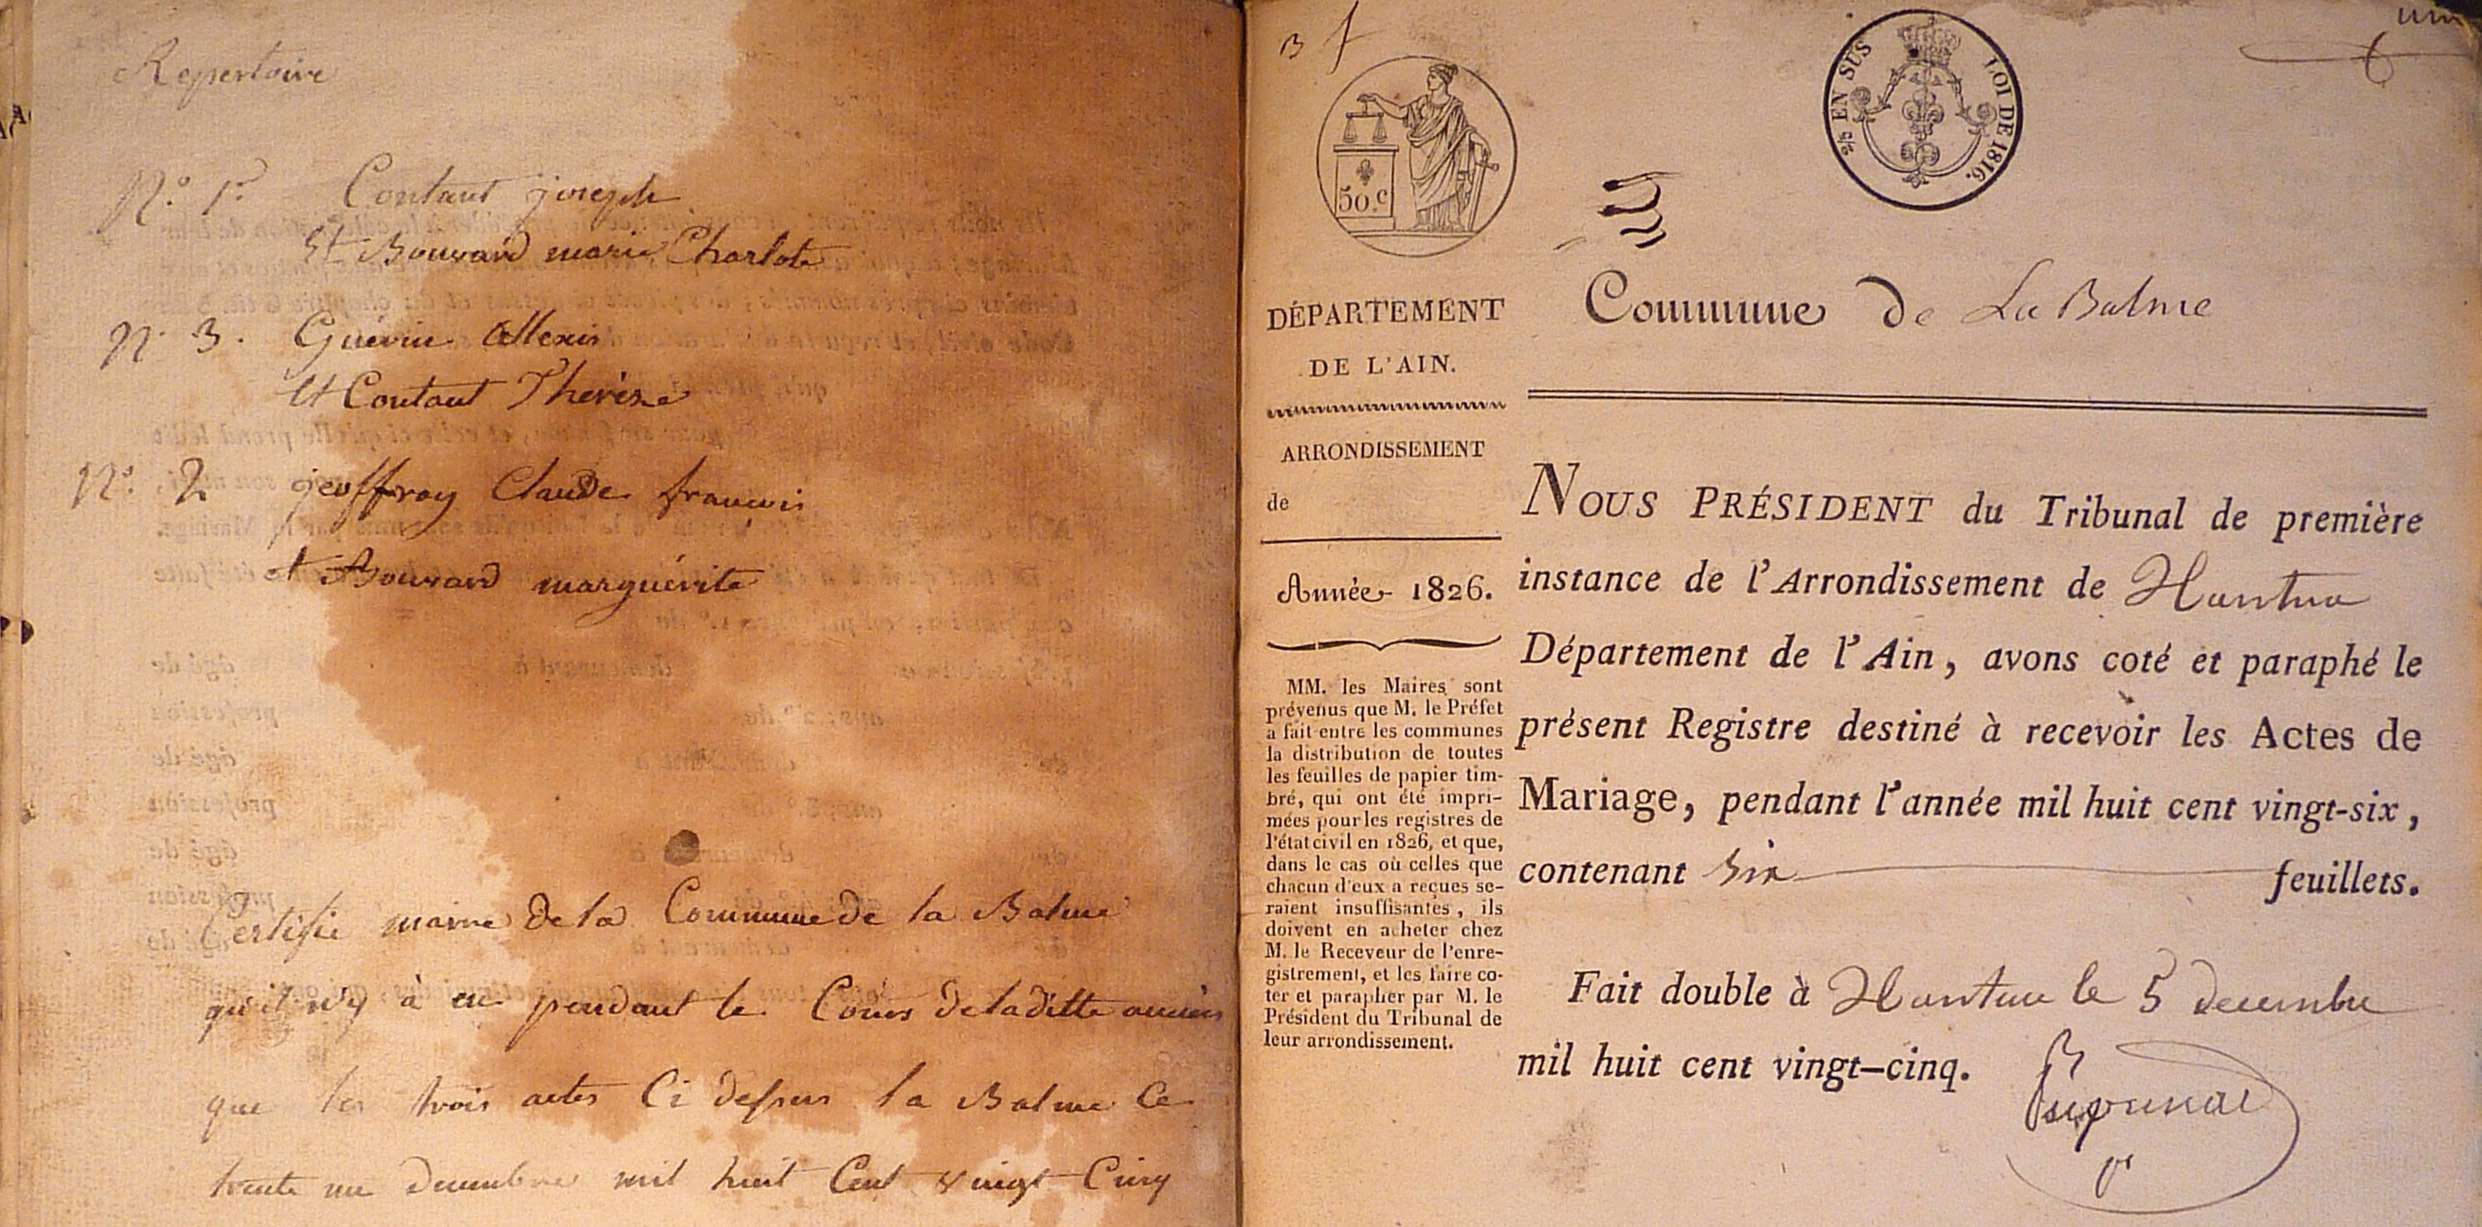 Repertoire
N.° 1.° Contant joseph
Et Bouvard marie Charlote
N.° 3. Guérin Allexis
Et Contant Therèse
N.° 2 jeoffray Claude francois
et Bouvard marguérite
Certifié maire de la Commune de la Balme
qu'il n'y à eu pendant le Cours de laditte année
que les trois actes Ci dessus la Balme Ce
trente un decembre mil huit Cent vingt Cinq
50.c
DÉPARTEMENT
DE L'AIN.
ARRONDISSEMENT
de
Année 1826.
MM. les Maires sont
prévenus que M. le Préfet
a fait entre les communes
la distribution de toutes
les feuilles de papier tim-
bré, qui ont été impri-
mées pour les registres de
l'état civil en 1826, et que,
dans le cas où celles que
chacun d'eux a reçues se-
raient insuffisantes, ils
doivent en acheter chez
M. le Receveur de l'enre-
gistrement, et les faire co-
ter et parapher par M. le
Président du Tribunal de
leur arrondissement.
EN SUS
LOI DE 1816.
Commune de La Balme
NOUS PRÉSIDENT du Tribunal de première
instance de l'Arrondissement de Nantua
Département de l'Ain, avons coté et paraphé le
présent Registre destiné à recevoir les Actes de
Mariage, pendant l'année mil huit cent vingt-six,
contenant six feuillets.
Fait double à Nantua le 5 decembre
mil huit cent vingt-cinq.